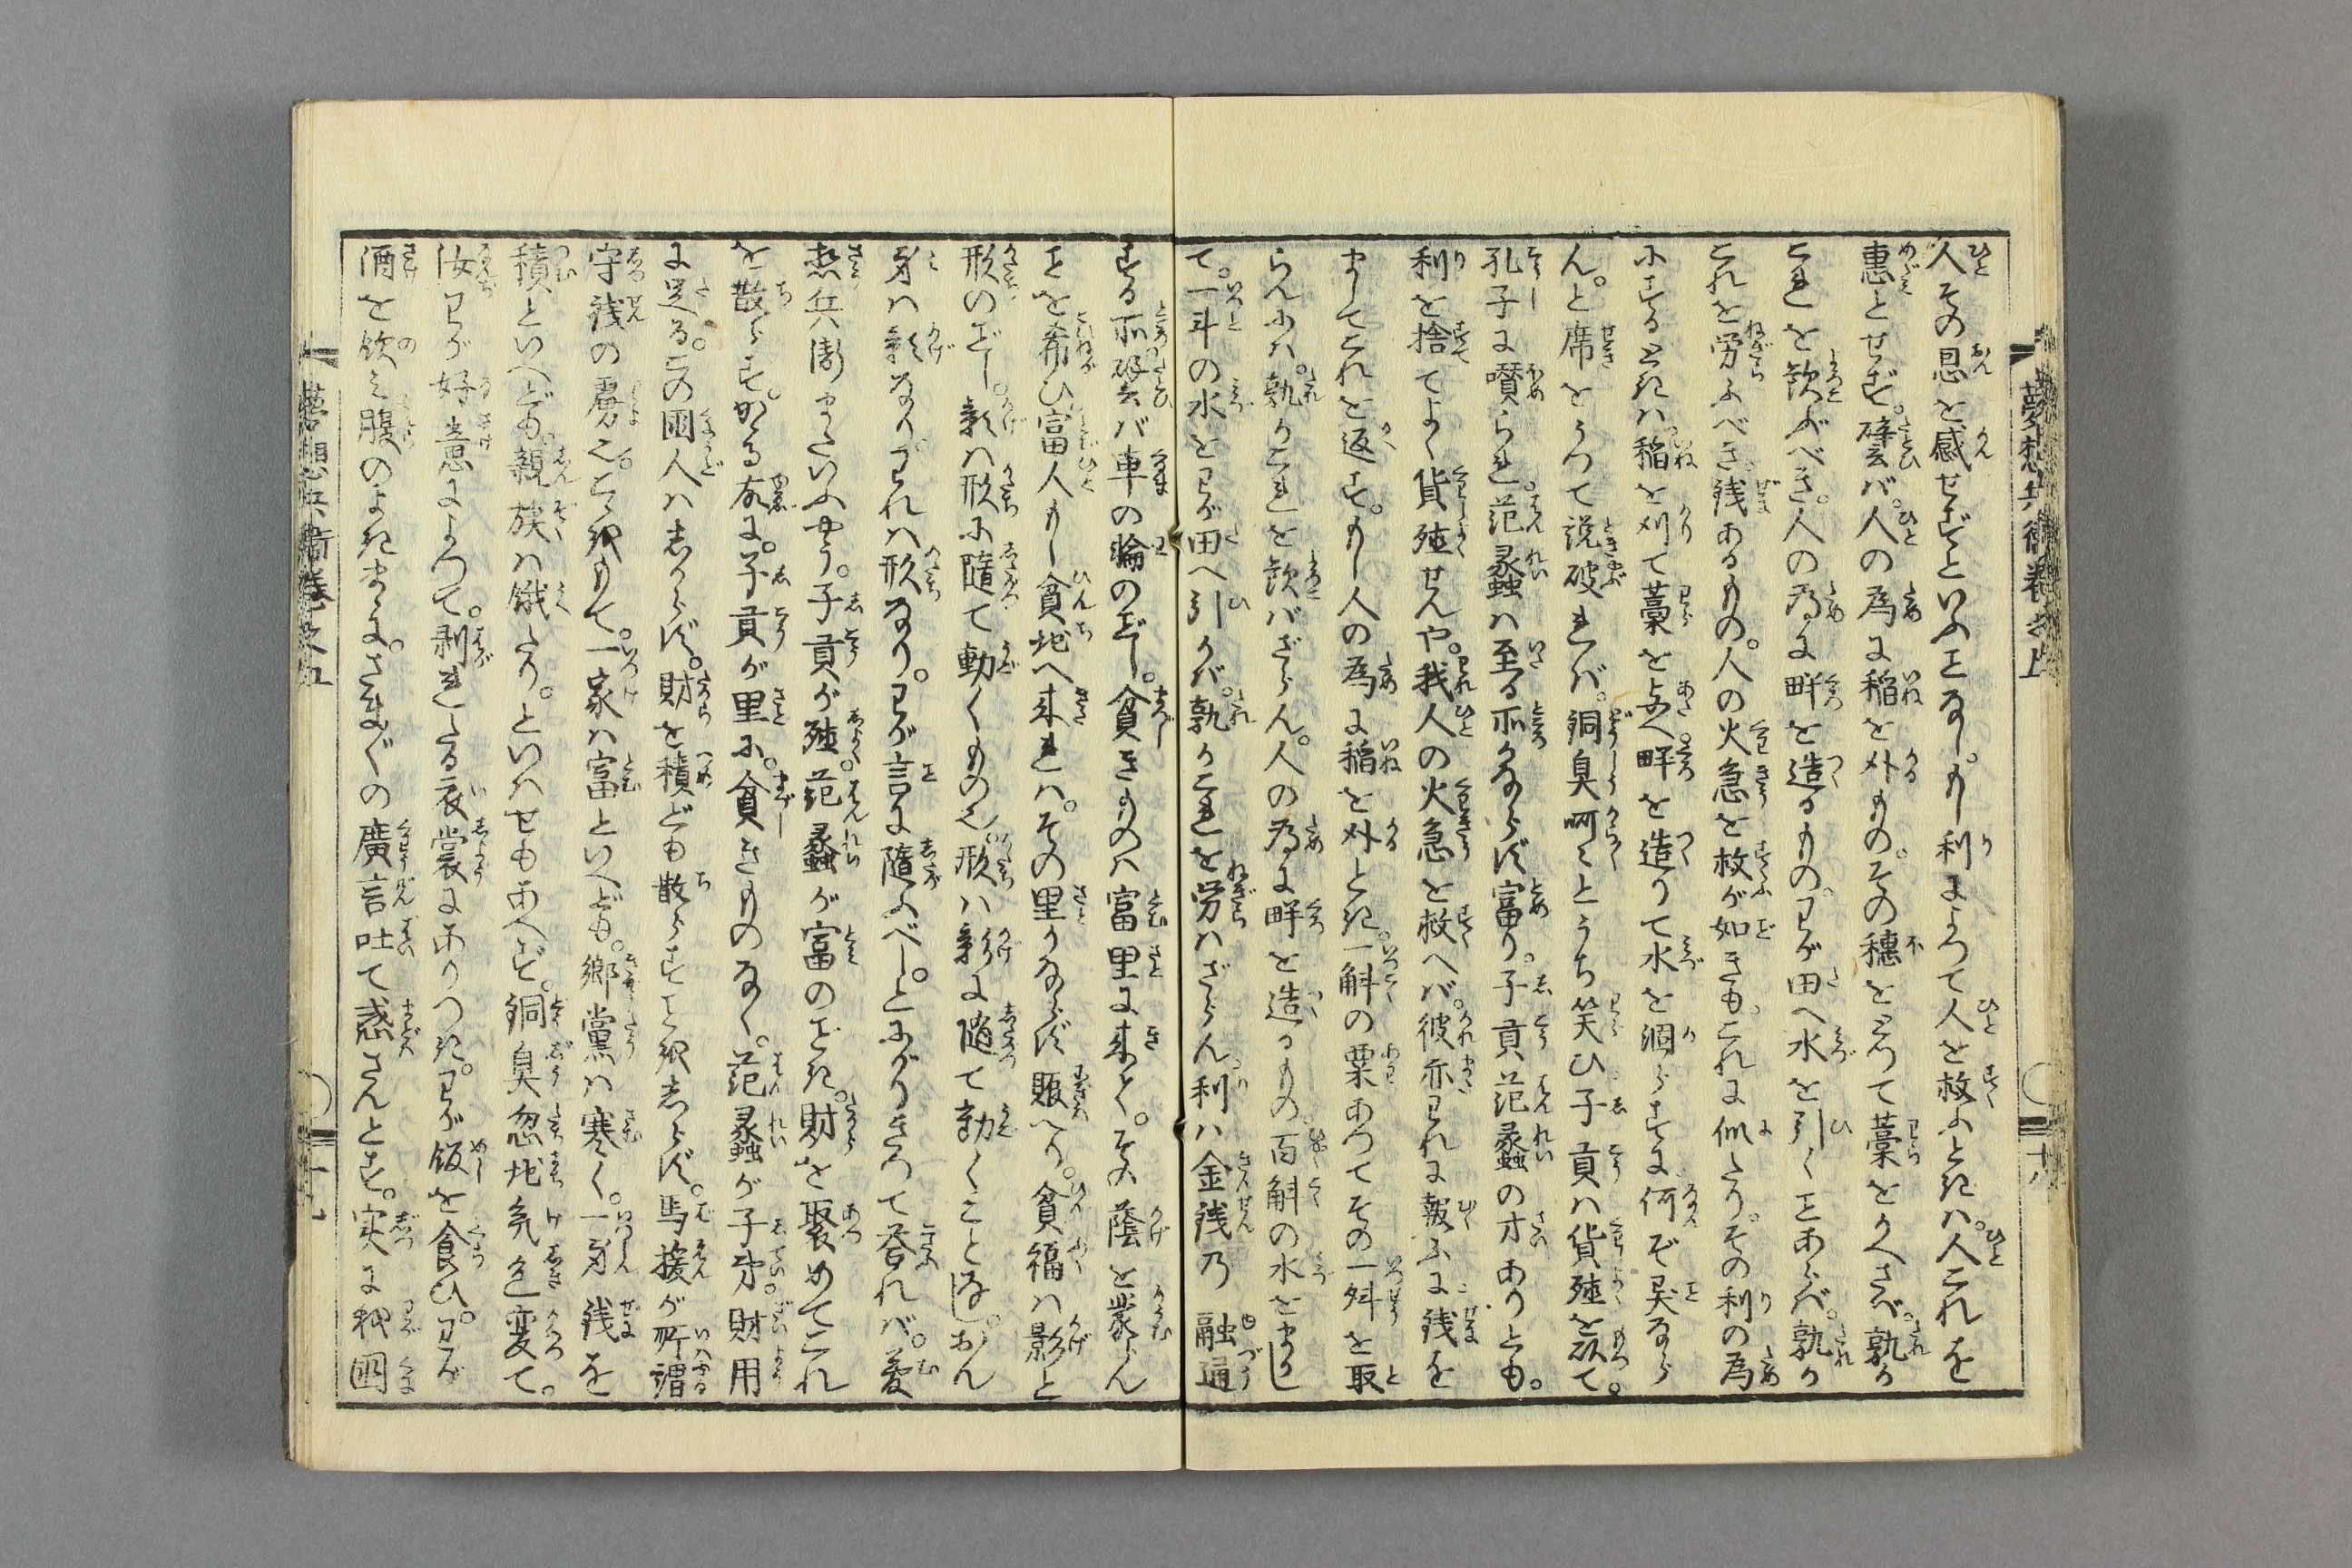 人その恩を感せずといふ𪜈なし。もし利によつて人を救ふときは。人これを
惠とせず。譬ば。人の為に稲を刈もの。その穗をとつて藁をかへさば。孰か
これを歓ぶべき。人の為に畔を造るもの。わが田へ水を引く𪜈あらば。孰か
これを労ふべき。銭あるもの。人の火急を救が如きも。これに似たり。その利の為
にするときは。稲を刈て藁を与へ。畔を造りて水を涸らすに何ぞ異なら
ん。と席をうつて説破れば。銅臭呵々とうち笑ひ子貢は貨殖を以て。
孔子に讃られ。范蠡は至る所かならず富り。子貢范蠡の才ありとも。
利を捨てよく貨殖せんや。我人の火急を救へば。彼亦われに報ふに銭を
ましてこれを返す。もし人の為に稲を刈とき。一斛の粟あつてその一舛を取
らんには。孰かこれを歓ばざらん。人の為に畔を造るもの。百斛の水をまし
て。一斗の水をわが田へ引かば。孰かこれを労はざらん。利は金銭乃融通
する所。譬ば車の輪の如し。貧きものは富里に来て。その蔭を蒙らん
𪜈を希ひ富人もし貧地へ来れは。その里かならず賑へり。貧福は影と
形の如し。影は形に隨て動くもの也。形は影に隨て動くことなし。おん
身は影なり。われは形なり。わが言に隨ふべし。とにがりきつて答れば。夢
想兵衛またいふやう。子貢が殖。范蠡が富の如き。財を聚めてこれ
を散らす。かゝる故に。子貢が里に。貧きものなく。范蠡が子弟。財用
に足る。この國人はしからず。財を積ども散らす𪜈をしらず。馬援が所謂
守銭の虜也。こゝをもて。一家は富といへども。郷黨は寒く。一身銭を
積といへども。親族は餓たり。といはせもあへず。銅臭忽地気色変て。
汝わが好意によつて。剥れたる衣裳にありつき。わが飯を食ひ。わが
酒を飲み腹のよきまゝに。さま〴〵の廣言吐て惑さんとす。実に我國
夢想兵衛巻之五